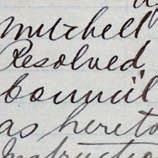 Mitchell
Resolved
Council
as hereto
Instructio